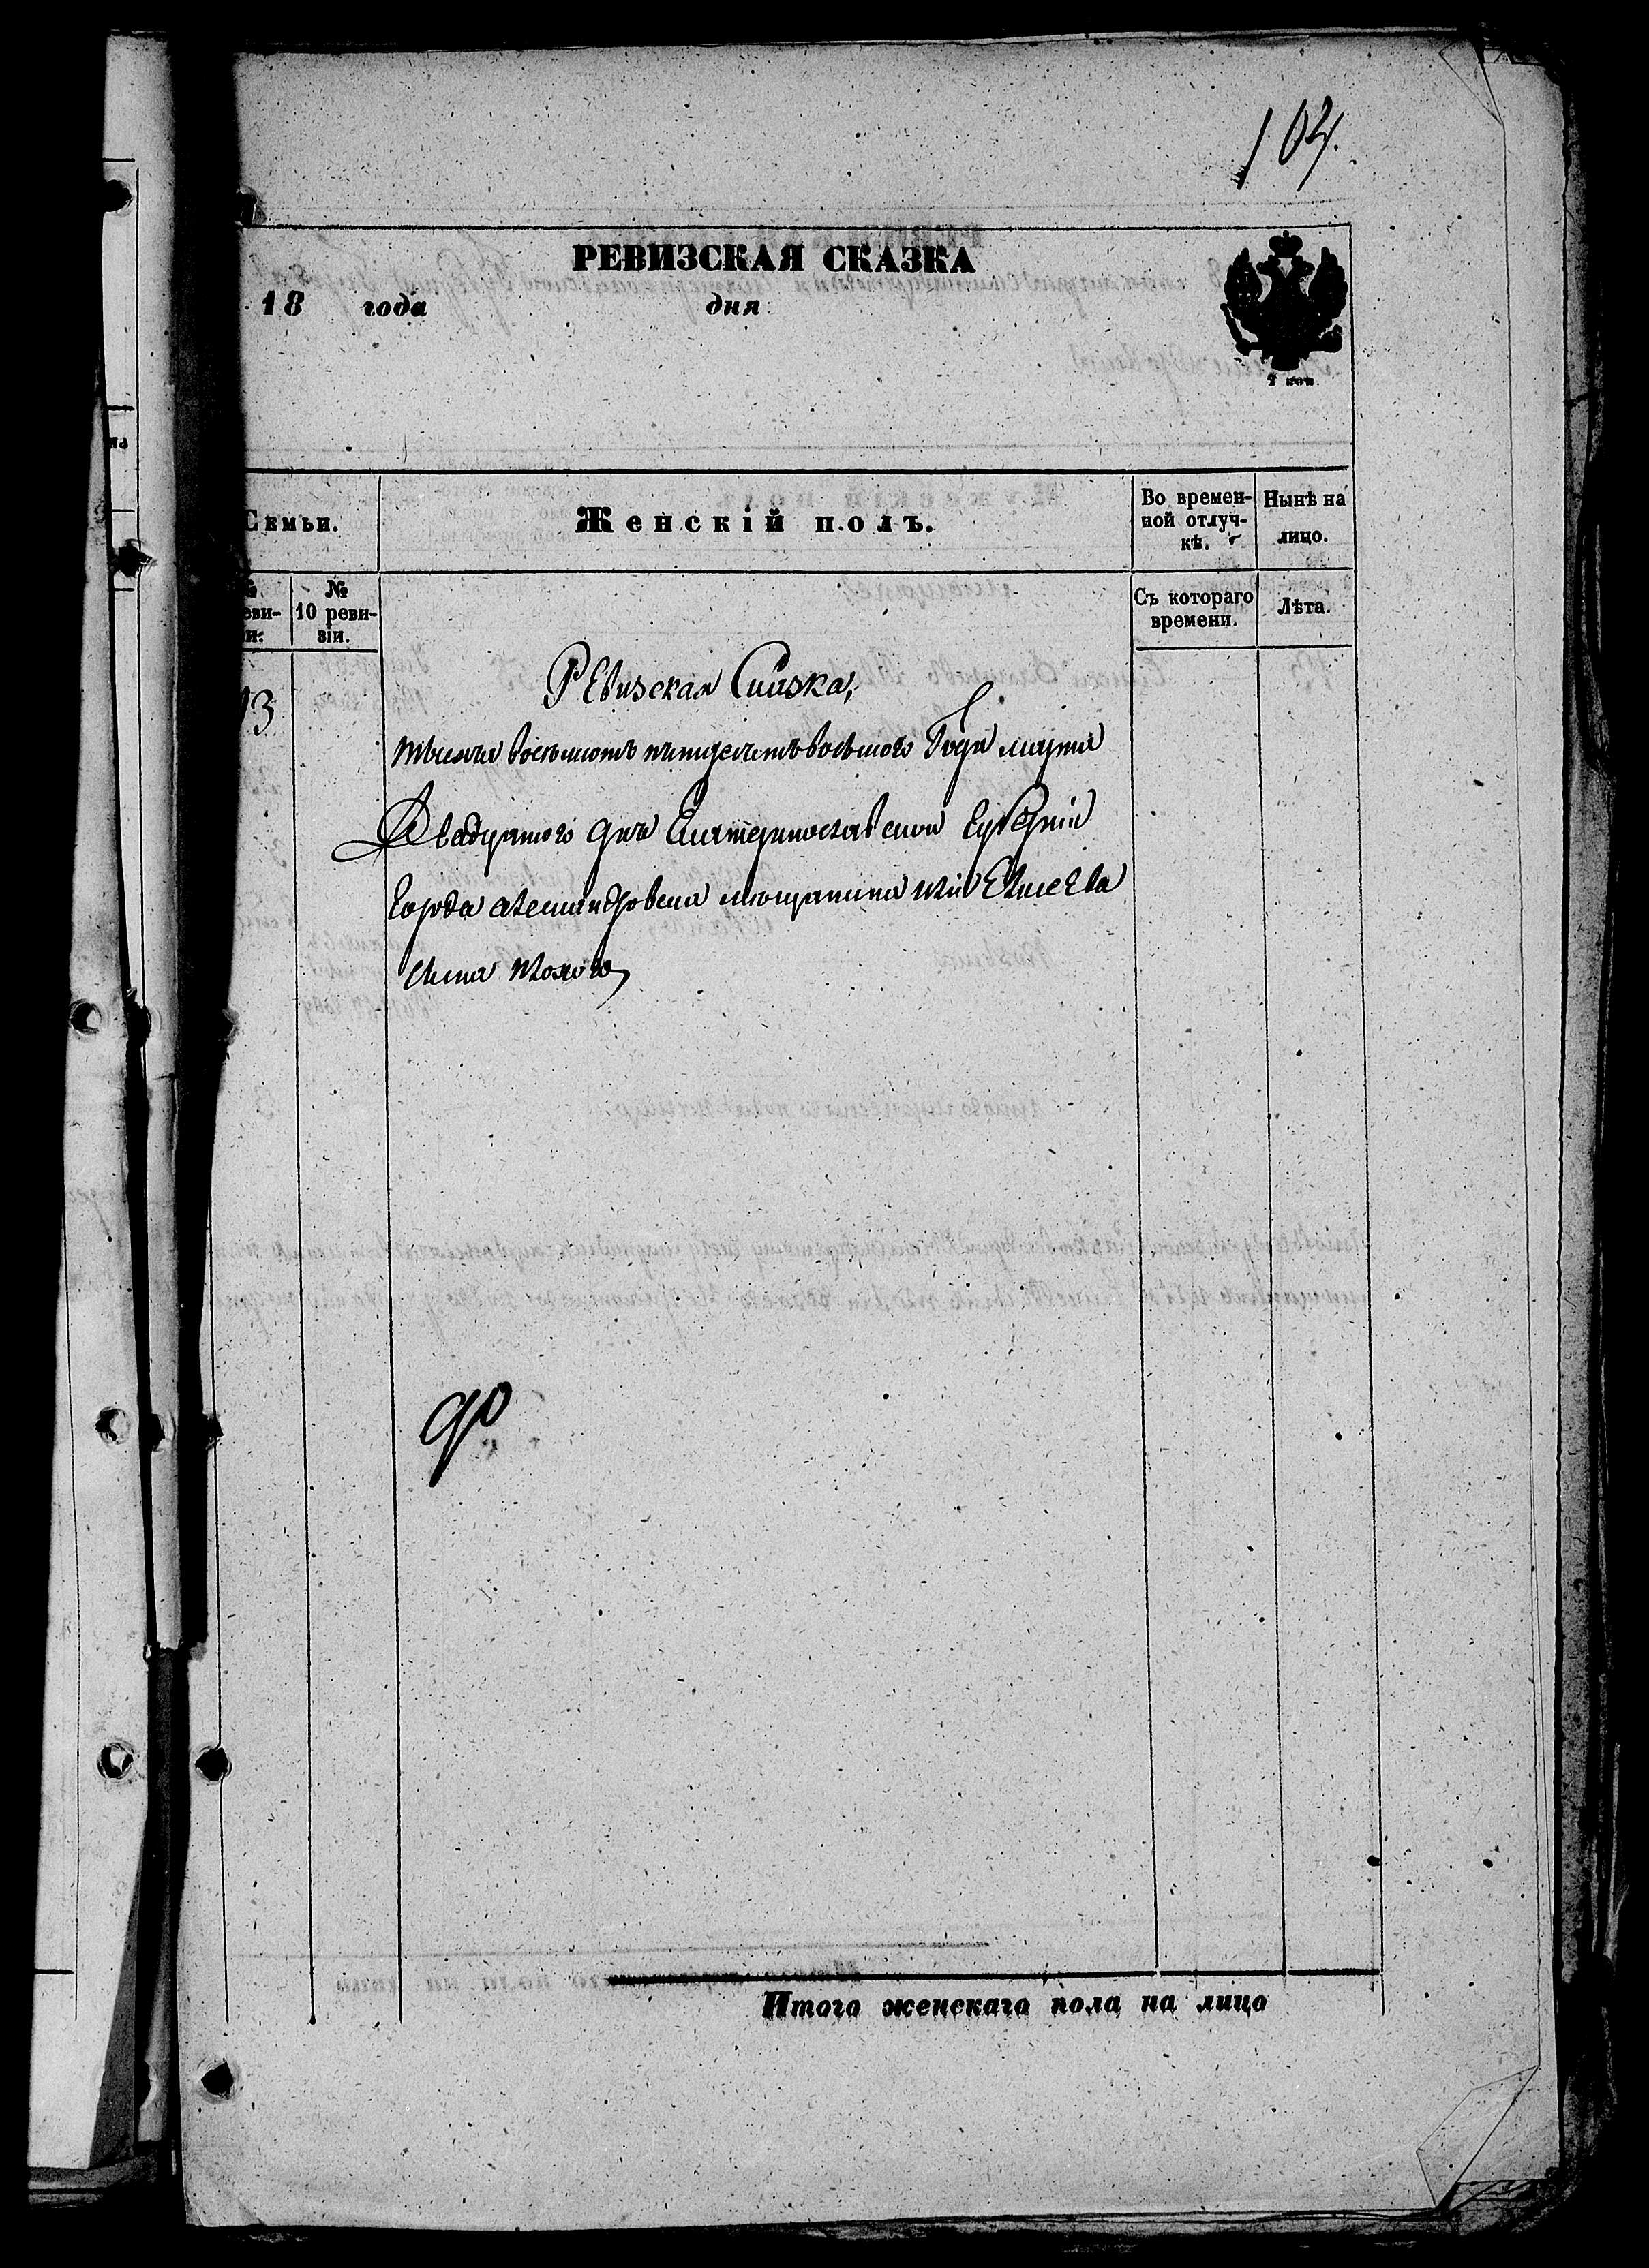 104.
РЕВИЗСКАЯ СКАЗКА
18 года дня
2 коп.
Семьи.
Женскій полъ.
Во времен-
ной отлуч-
кѣ.
Нынѣ на
лицо.
№
еви-
и.
№
10 реви-
зіи.
Съ котораго
времени.
Лѣта.
13
Ревизская Сказка,
тысяча восемьсотъ пятидесятъ восьмого Года марта
Двадцатого дня Екатеринославской Губерніи
Города Александровска мещанина Евсеева
сына
Итого женскаго пола на лицо